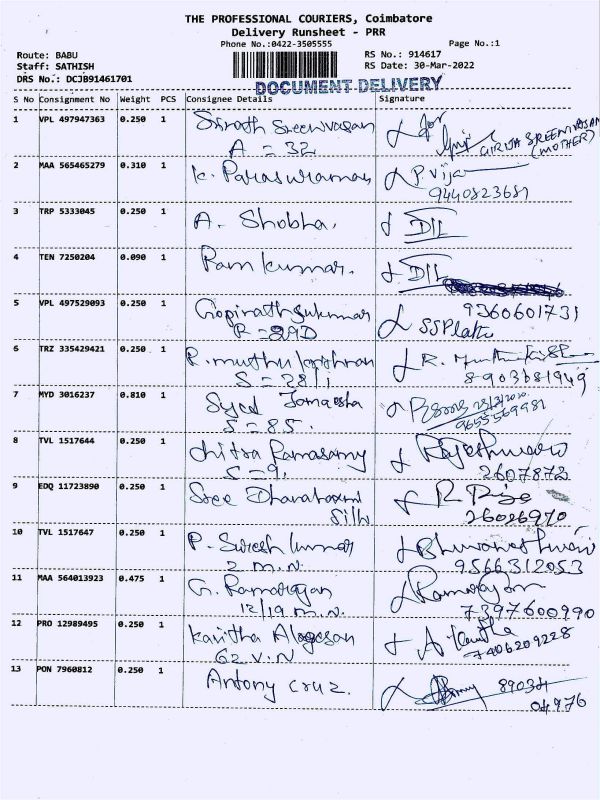 THE PROFESSIONAL COURIERS, Coimbatore
Delivery Runsheet - PRR
Phone No.:0422-3505555 Page No.:1
Route: BABU RS No.: 914617
Staff: SATHISH RS Date: 30-Mar-2022
DRS No.: DCJB91461701
DOCUMENT DELIVERY
S No Consignment No Weight PCS Consignee Details Signature
1 VPL 497947363 0.250 1 Srinath Sreenivasan for
A = 32 GIRIJA SREENIVASAN
(MOTHER)
2 MAA 565465279 0.310 1 K. Parasuraman P. Vija
9440823681
3 TRP 5333045 0.250 1 A. Shobha. DIL
4 TEN 7250204 0.090 1 Ram kumar. DIL
5 VPL 497529093 0.250 1 Gopinath Sukumar 9360601731
R = 29D
6 TRZ 335429421 0.250 1 R. muthu krishnan R.
S = 28/1 8903681949
7 MYD 3016237 0.810 1 Syed
S = 85. 9655569981
8 TVL 1517644 0.250 1 chitra Ramasamy Rajeshwari
S = 9, 2607872
9 EDQ 11723890 0.250 1 Sree R.
Silk 26026970
10 TVL 1517647 0.250 1 P. Suresh kumar Bhuvaneshwari
2 m.n 9566312053
11 MAA 564013923 0.475 1 G. Ramarajan Ramarajan
12/19 m.n. 7397600990
12 PRO 12989495 0.250 1 Kavitha Alagesan A. Kavitha
62 V.N 7406209228
13 PON 7960812 0.250 1 Antony cruz. 89034
04976